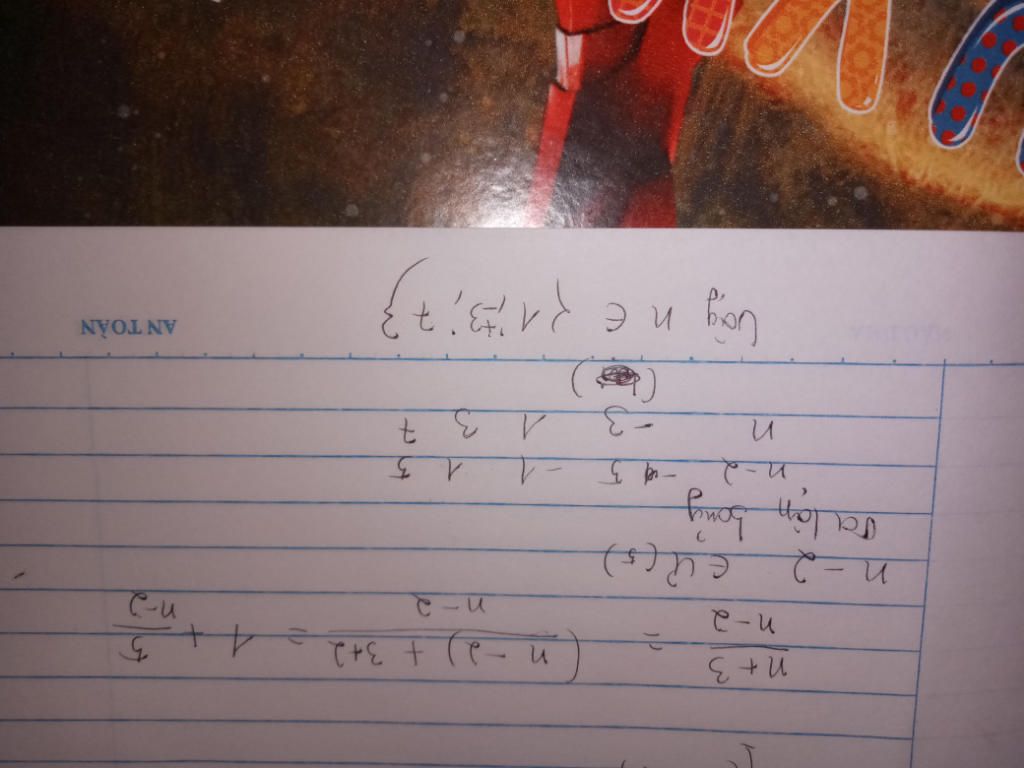 n+3/n-2 = (n-2)+3+2/n-2 = 1 + 5/n-2
n-2 ∈ Ư(5)
Ta lập bảng
n-2 -5 -1 1 5
n -3 1 3 7
( )
Vậy n ∈ {1; ±3; 7}
AN TOÀN